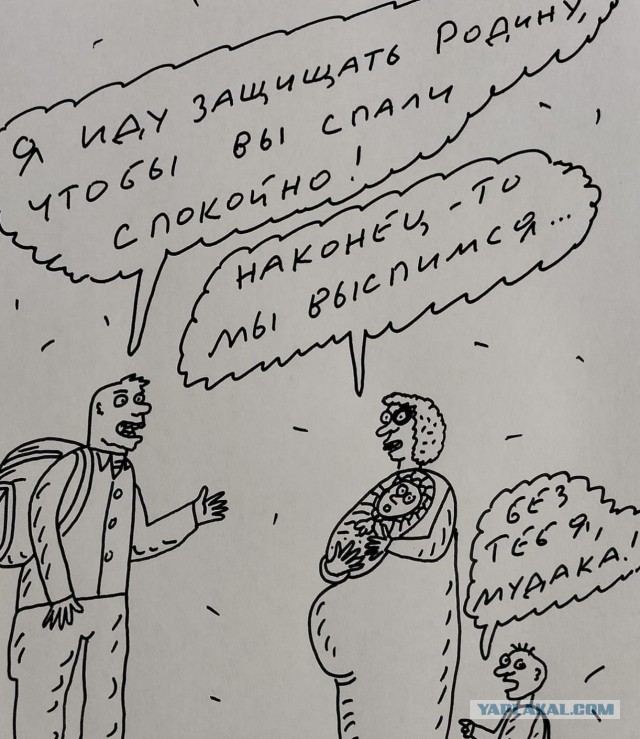 Я ИДУ ЗАЩИЩАТЬ РОДИНУ,
ЧТОБЫ ВЫ СПАЛИ
СПОКОЙНО!
НАКОНЕЦ-ТО
МЫ ВЫСПИМСЯ...
БЕЗ
ТЕБЯ,
МУДАКА!
YAPLAKAL.COM